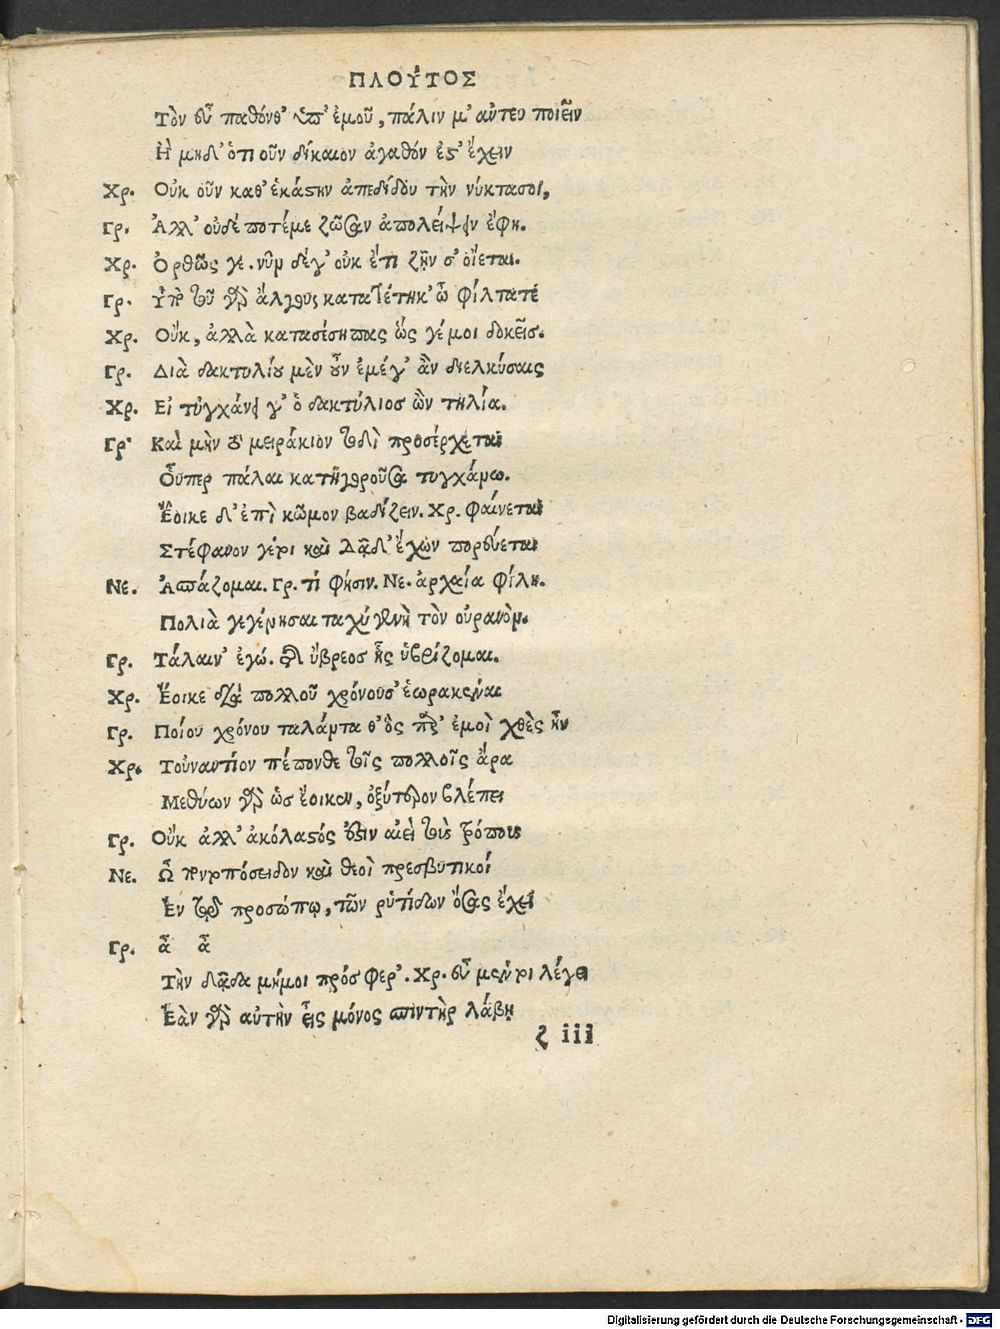 ΠΛΟΥ͂ΤΟΣ
Τὸν εὖ παθόνθ' ὑπ' ἐμοῦ, πάλιν μ' αὖτευ ποιεῖν
Ἢ μηδ' ὁτι οὖν δίκαιον ἀγαθόν ἐς' ἔχειν
Χρ. Οὐκ οὖν καθ' ἑκάστην ἀπεδίδου τὴν νύκτασοι,
Γρ. Ἀλλ' οὐδέ ποτέμε ζῶσαν ἀπολείψειν ἔφη.
Χρ. Ὀρθῶς γε. νῦν δέγ' οὐκ ἔτι ζῆν σ' οἴεται.
Γρ. Ὑπὸ τοῦ γὰρ ἄλγους κατατέτηκ' ὦ φίλτατέ
Χρ. Οὔκ, ἀλλὰ κατασέσηπας ὥς γέμοι δοκεῖς.
Γρ. Διὰ δακτυλίου μὲν οὖν ἐμέγ' ἂν διελκύσαις
Χρ. Εἰ τύγχάνει γ' ὁ δακτύλιοσ ὢν τηλία.
Γρ. Καὶ μὴν τὸ μειράκιον τοδὶ προσέρχεται
Οὗπερ πάλαι κατηγοροῦσα τυγχάνω.
Ἔοικε δ' ἐπὶ κῶμον βαδίζειν. Χρ. φαίνεται
Στέφανον γέτοι καὶ δᾷδ' ἔχων πορεύεται
Νε. Ἀσπάζομαι. Γρ. τί φησιν. Νε. ἀρχαία φίλη.
Πολιὰ γεγένησαι ταχύ γε νὴ τὸν οὐρανόν.
Γρ. Τάλαιν' ἐγώ. τῆς ὕβρεοσ ἧς ὑβρίζομαι.
Χρ. Ἔοικε διὰ πολλοῦ χρόνουσ' ἑωρακέναι
Γρ. Ποίου χρόνου ταλάντα θ' ὃς παρ' ἐμοὶ χθὲς ἦν
Χρ. Τοὐναντίον πέπονθε τοῖς πολλοῖς ἄρα
Μεθύων γὰρ ὡσ ἔοικεν, ὀξύτερον βλέπει
Γρ. Οὔκ ἀλλ' ἀκόλαστός ἐστιν αἰεὶ τοὺς τρόπους
Νε. Ὦ ποντοπόσειδον καὶ θεοὶ πρεσβυτικοί
Ἐν τῷ προσώπῳ, τῶν ῥυτίδων ὅσας ἔχει
Γρ. ἆ ἆ
Τὴν δᾷδα μήμοι πρόσφερ'. Χρ. εὖ μέντοι λέγει
Ἐὰν γὰρ αὐτὴν εἷς μόνος σπινθὴρ λάβῃ
ζ iii
Digitalisierung gefördert durch die Deutsche Forschungsgemeinschaft - DFG